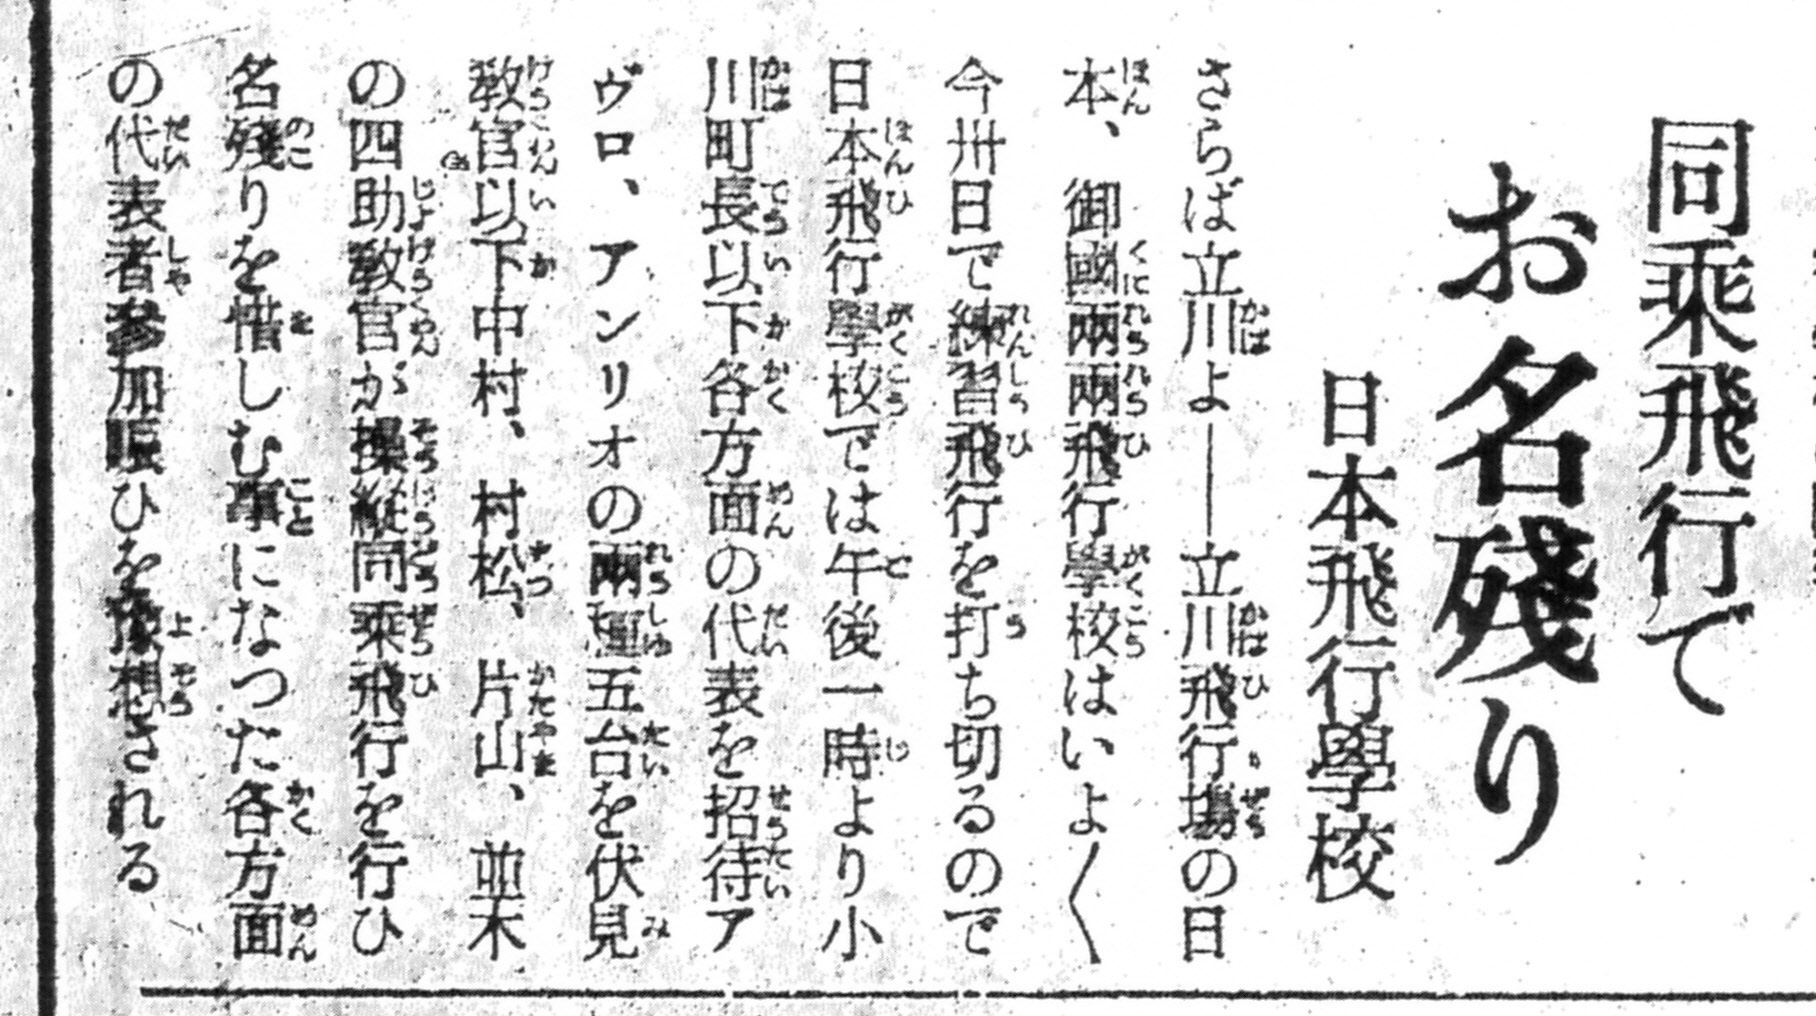 同乘飛行で
お名殘り
日本飛行學校
さらば立川よ―立川飛行場の日
本、御國兩兩飛行學校はいよ〱
今卅日で練習飛行を打ち切るので
日本飛行學校では午後一時より小
川町長以下各方面の代表を招待ア
ヴロ、アンリオの兩種五台を伏見
敎官以下中村、村松、片山、並木
の四助敎官が操縱同乘飛行を行ひ
名殘りを惜しむ事になつた各方面
の代表者參加賑ひを豫想される